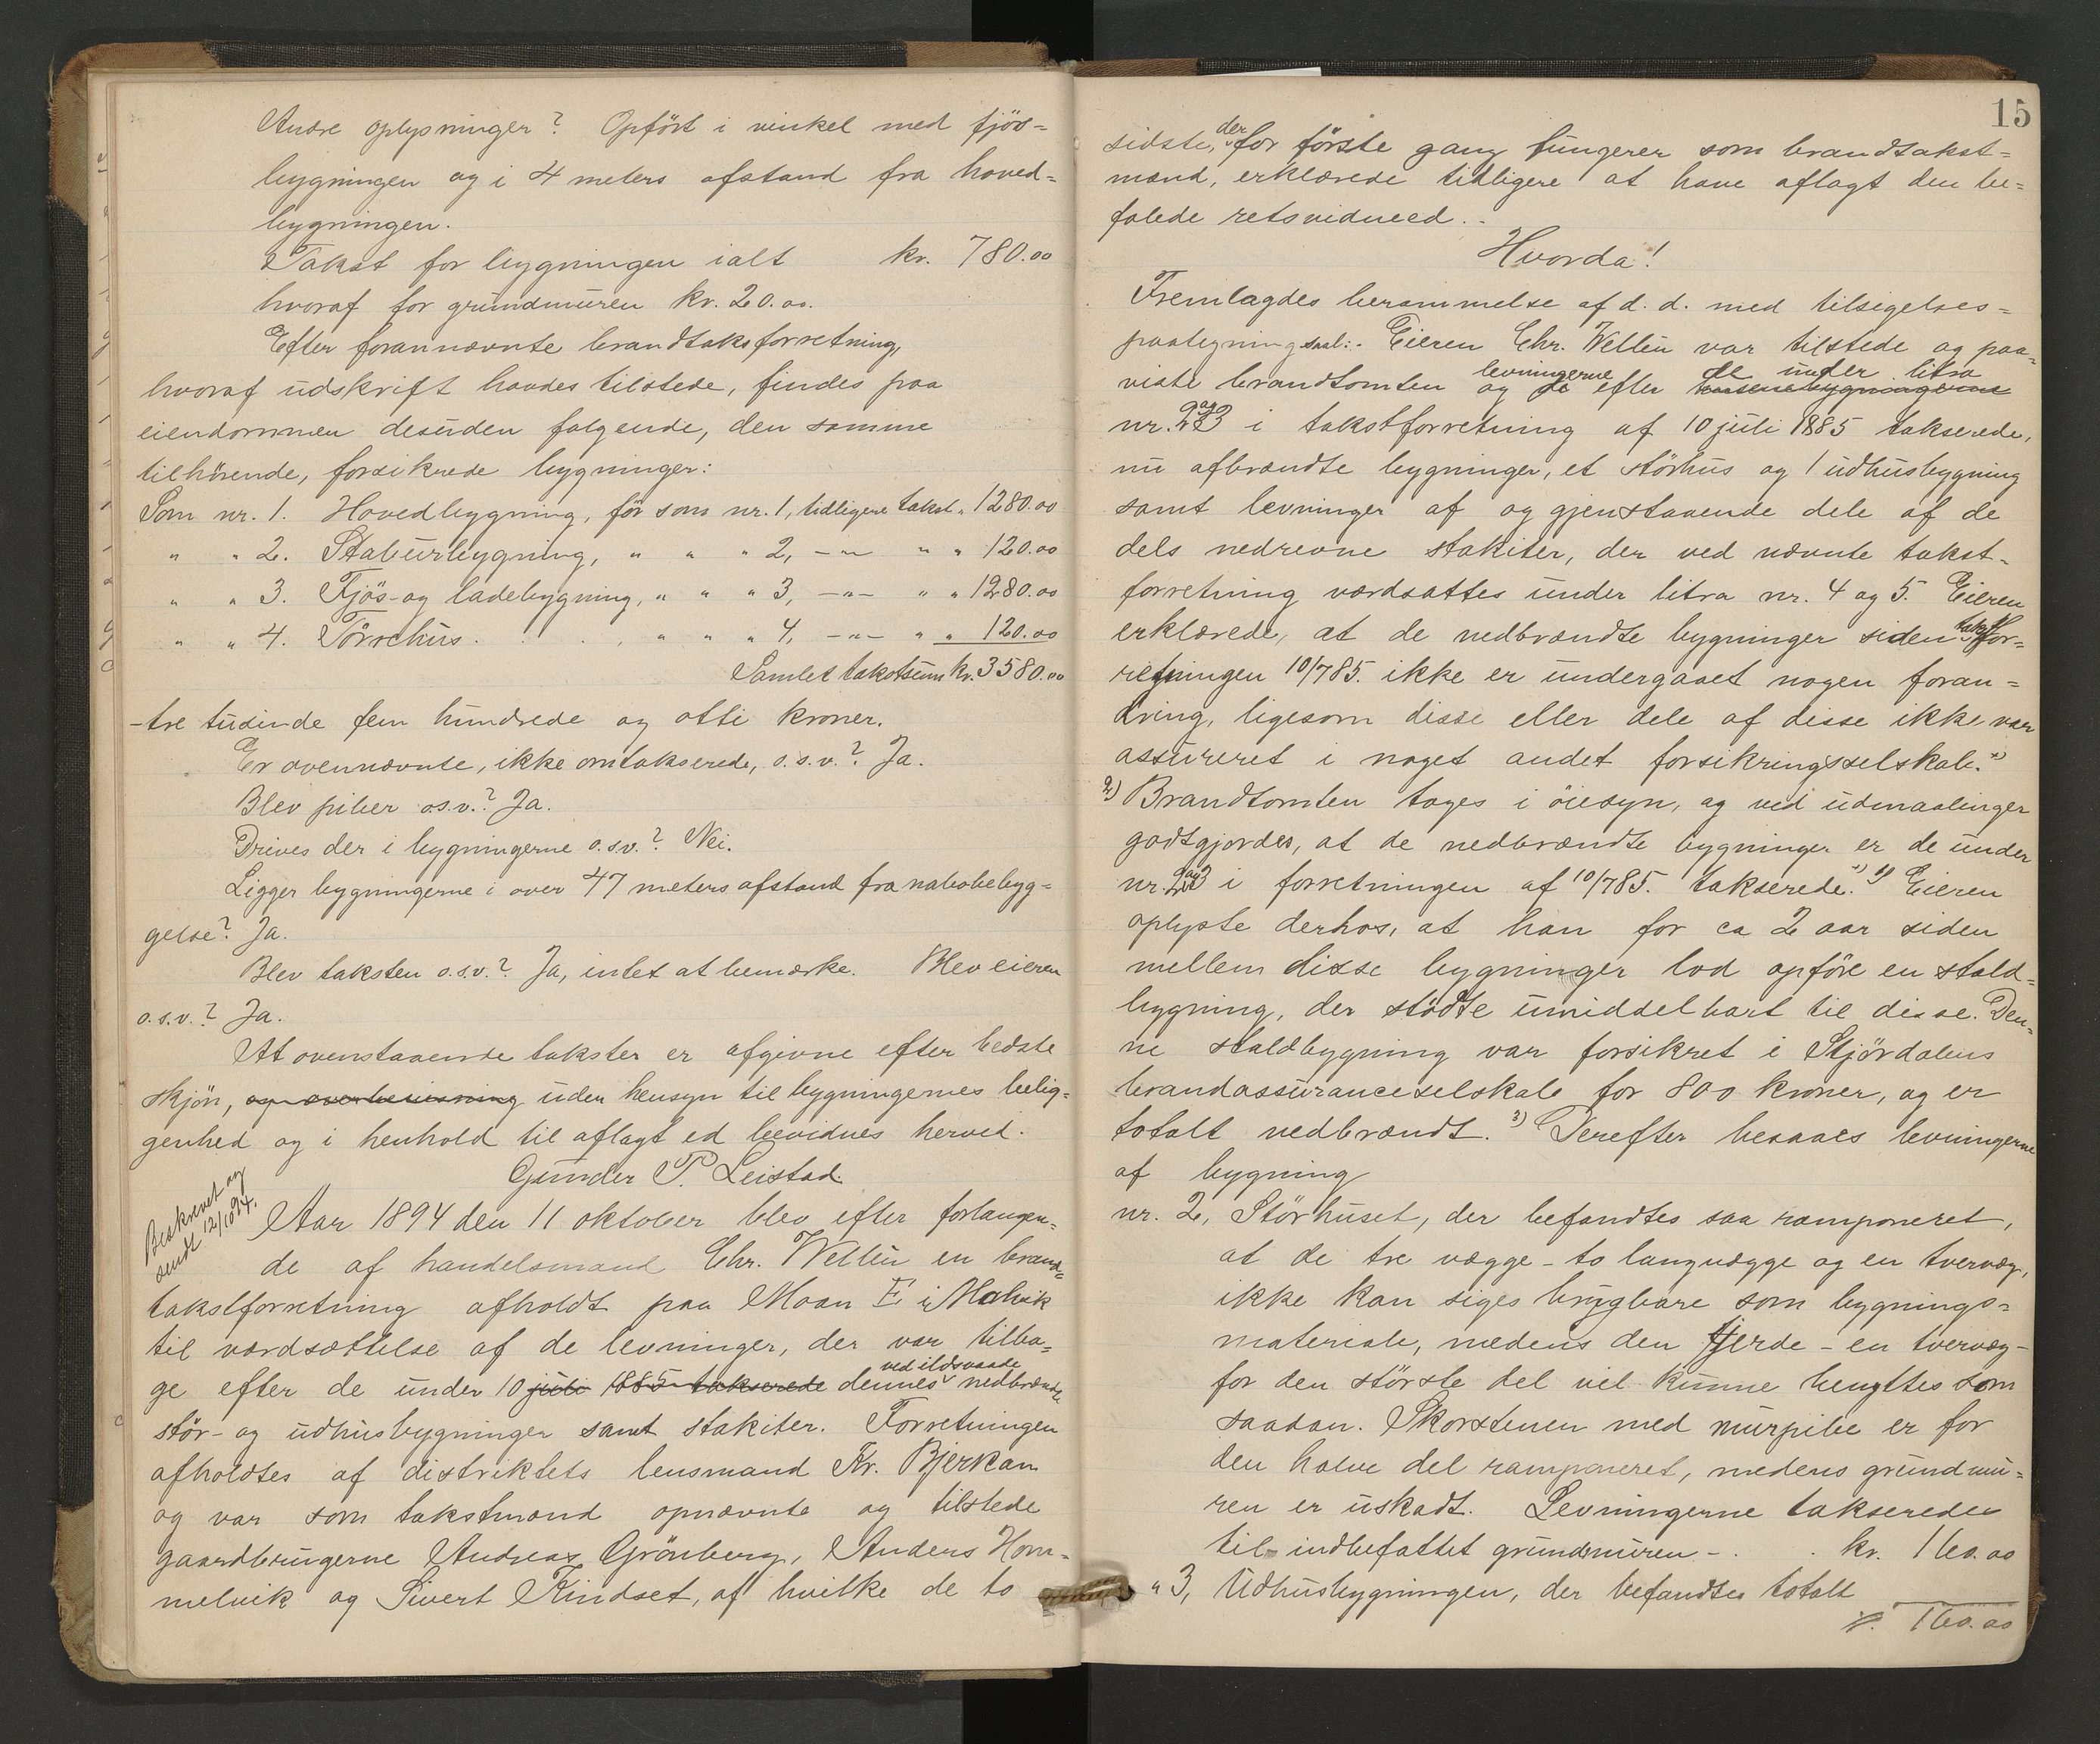 Andre oplysninger? Opført i vinkel med fjös-
bygningen og i 4 meters afstand fra hoved-
bygningen.
Takst for bygningen ialt kr. 780.00
hvoraf for grundmuren kr. 20.00.
Efter forannævnte brandtaksforretning,
hvoraf udskrift havdes tilstede, findes paa
eiendommen desuden følgende, den samme
tilhörende, forsikrede bygninger:
Som nr. 1. Hovedbygning, för som nr. 1, tidligere takst " 1280.00
" " 2. Stabursbygning, " " " 2, -"- " " 120.00
" " 3. Fjös- og ladebygning, " " " 3, -"- " " 1280.00
" " 4. Törrehus. . . . " " " 4, -"- " " 120.00
Samlet takstsum kr. 3580.00
- tre tusinde fem hundrede og otti kroner.
Er ovennævnte, ikke omtakserede, o.s.v.? Ja.
Blev piber o.s.v.? Ja.
Drives der i bygningerne o.s.v.? Nei.
Ligger bygningerne i over 47 meters afstand fra nabobebyg-
gelse? Ja.
Blev taksten o.s.v.? Ja, intet at bemærke. Blev eieren
o.s.v.? Ja.
At ovenstaaende takster er afgivne efter bedste
skjön, og overbevisning uden hensyn til bygningernes belig-
genhed og i henhold til aflagt ed bevidnes herved.
Gunder P. Leistad.
Beskrevet og
sendt 12/10 94.
Aar 1894 den 11 oktober blev efter forlangen-
de af handelsmand Chr. Wellin en brand-
takstforretning afholdt paa Moan E i Malvik
til værdsættelse af de levninger, der var tilba-
ge efter de under 10 juli 1885 takserede dennes ved ildsvaade nedbrændte
stör- og udhusbygninger samt stakiter. Forretningen
afholdtes af distriktets lensmand Kr. Bjerkan
og var som takstmænd opnævnte og tilstede
gaardbrugerne Andreas Grönberg, Anders Hom-
melvik og Sivert Kindset, af hvilke de to
15
sidste, der for förste gang fungerer som brandtakst-
mænd, erklærede tidligere at have aflagt den be-
falede retsvidneed. -
Hvorda!
Fremlagdes berammelse af d. d. med tilsigelses-
paategning saal: . Eieren Chr. Wellin var tilstede og paa-
viste brandtomten og de levningerne efter de under litra
nr. 2 og 3 i takstforretning af 10 juli 1885 takserede,
nu afbrændte bygninger, et störhus og 1 udhusbygning
samt levninger af og gjenstaaende dele af de
dels nedrevne stakiter, der ved nævnte takst-
forretning værdsattes under litra nr. 4 og 5. Eieren
erklærede, at de nedbrændte bygninger siden takstfor-
retningen 10/7 85. ikke er undergaaet nogen foran-
dring, ligesom disse eller dele af disse ikke var
assureret i noget andet forsikringsselskab.
2) Brandtomten toges i öiesyn, og ved udmaalinger
godtgjordes, at de nedbrændte bygninger er de under
nr. 2 og 3 i forretningen af 10/7 85. takserede. 1) Eieren
oplyste derhos, at han for ca 2 aar siden
mellem disse bygninger lod opföre en stald-
bygning, der stödte umiddelbart til disse. Den-
ne staldbygning var forsikret i Stjördalens
brandassuranceselskab for 800 kroner, og er
totalt nedbrændt. 3) Derefter besaaes levningerne
af bygning
nr. 2, Störhuset, der befandtes saa ramponeret,
at de tre vægge - to langvægge og en tvervæg,
ikke kan siges brugbare som bygnings-
materiale, medens den fjerde - en tvervæg -
for den störste del vil kunne benyttes som
saadan. Skorstenen med murpibe er for
den halve del ramponeret, medens grundmu-
ren er uskadt. Levningerne takseredes
til indbefattet grundmuren - . . kr. 160.00
" 3, Udhusbygningen, der befandtes totalt
160.00